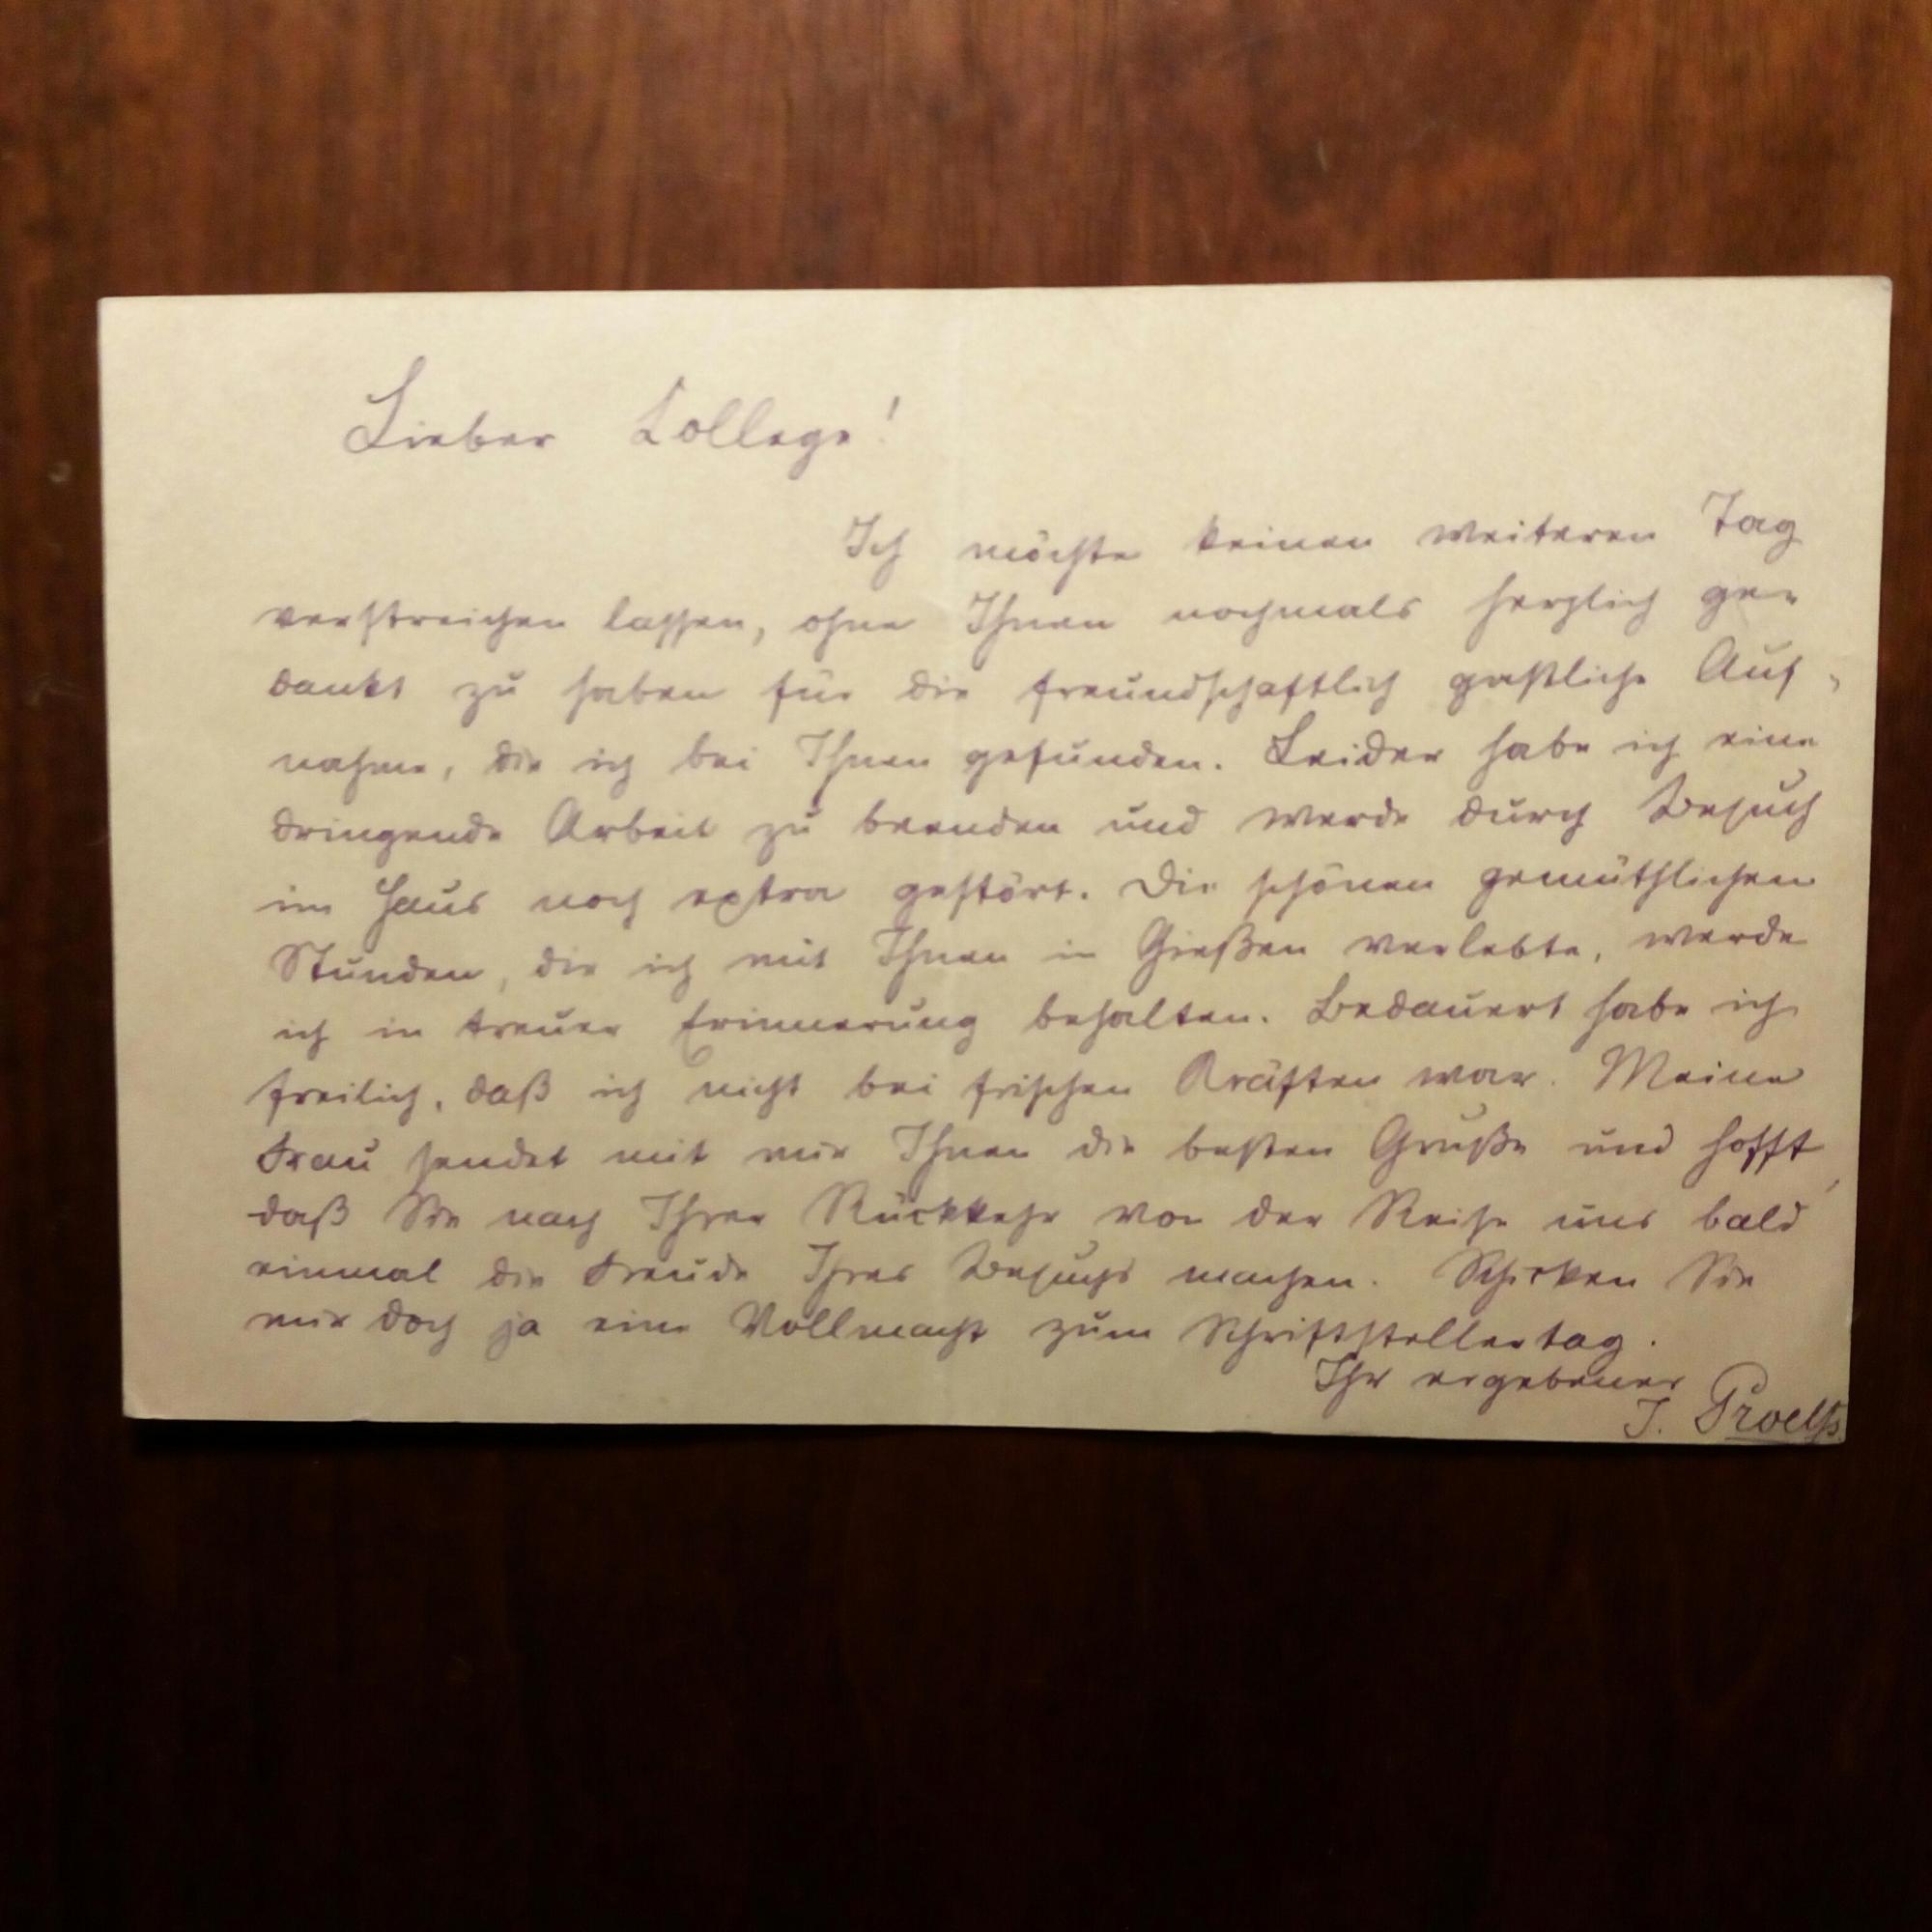 Lieber Kollege!
Ich möchte keinen weiteren Tag
verstreichen lassen, ohne Ihnen nochmals herzlich ge-
dankt zu haben für die freundschaftlich gastliche Auf-
nahme, die ich bei Ihnen gefunden. Leider habe ich eine
dringende Arbeit zu beenden und werde durch Besuch
im Haus noch extra gestört. Die schönen gemüthlichen
Stunden, die ich mit Ihnen in Gießen verlebte, werde
ich in treuer Erinnerung behalten. Bedauert habe ich
freilich, daß ich nicht bei frischen Kräften war. Meine
Frau sendet mit mir Ihnen die besten Grüße und hofft,
daß Sie nach Ihrer Rückkehr von der Reise uns bald
einmal die Freude Ihres Besuchs machen. Schicken Sie
mir doch ja eine Vollmacht zum Schriftstellertag.
Ihr ergebener
J. Proelß